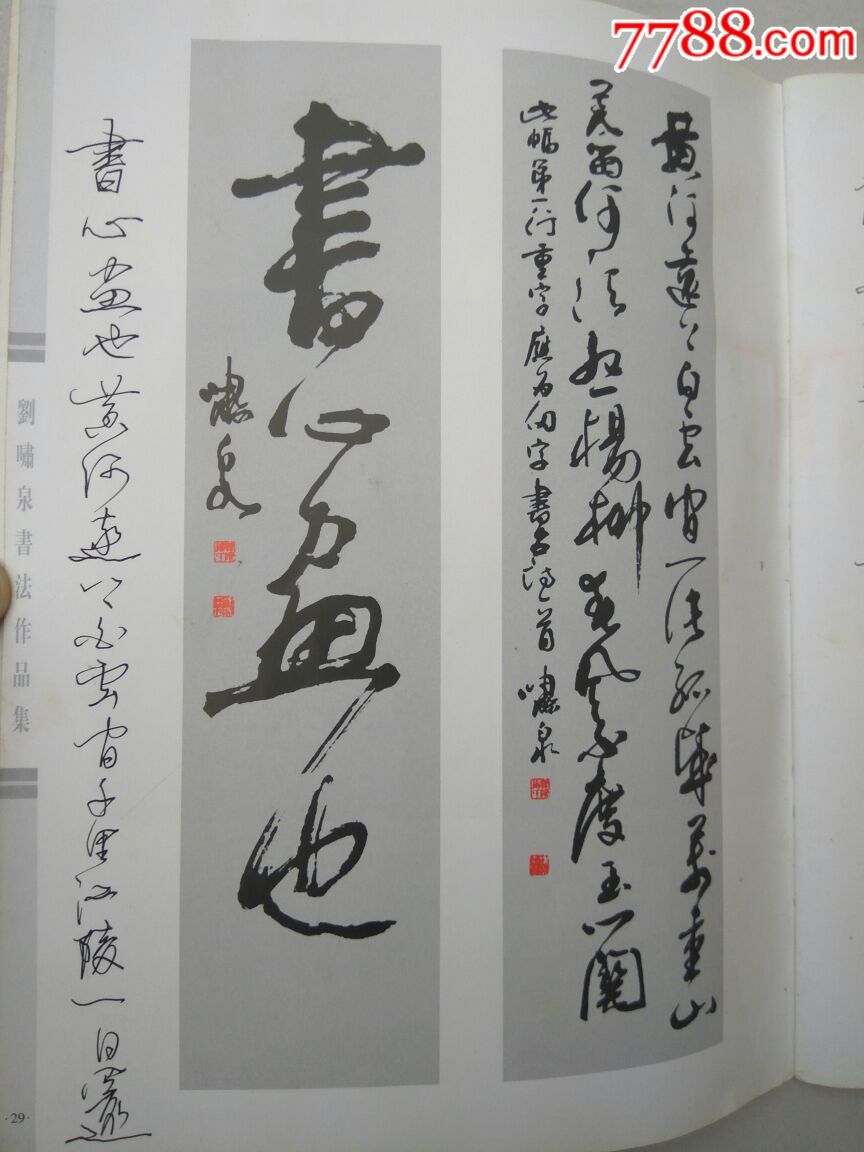 7788.com
黃河遠上白雲間一片孤城萬重山
羌笛何須怨楊柳春風不度玉門關
此幅第一行重字應為仞字 書古詩一首 嘯泉
書心畫也
嘯泉
書心畫也黃河遠上白雲間千里江陵一日還
劉嘯泉書法作品集
·29·